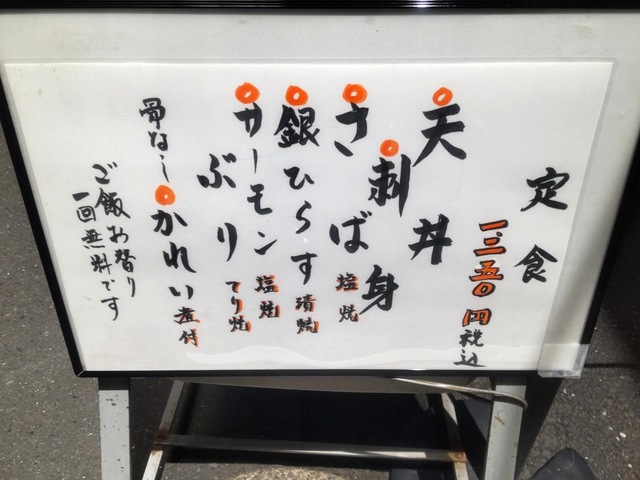 定食
一、三五〇円税込
天丼
刺身
さば塩焼
銀ひらす漬焼
サーモン塩焼
ぶりてり焼
骨なしかれい煮付
ご飯お替り
一回無料です